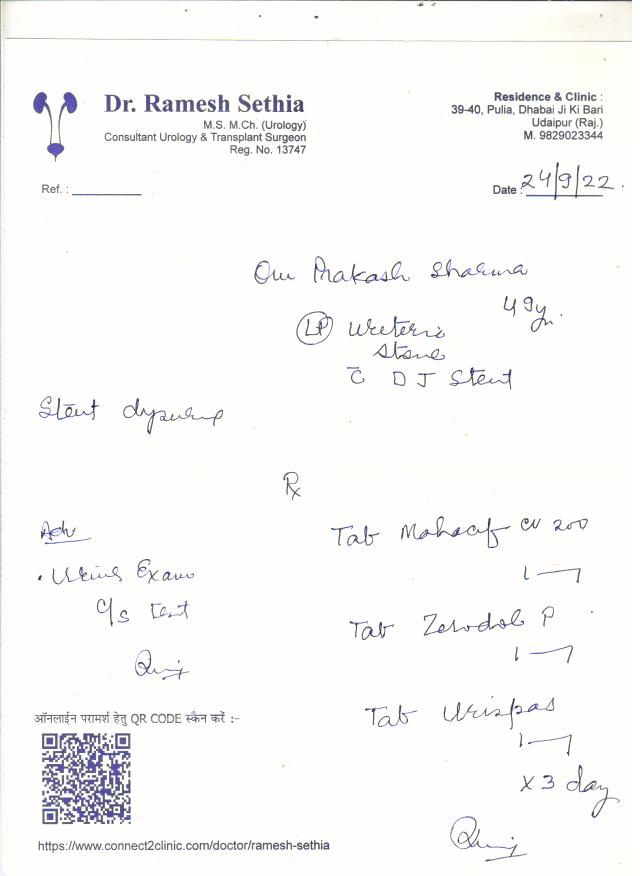 Dr. Ramesh Sethia
M.S. M.Ch. (Urology)
Consultant Urology & Transplant Surgeon
Reg. No. 13747
Residence & Clinic :
39-40, Pulia, Dhabai Ji Ki Bari
Udaipur (Raj.)
M. 9829023344
Ref. :
Date : 24/9/22.
Om Prakash Sharma
49yr.
Ureteric
Stone
c̄ D J Stent
Stent dysuria
Rx
Adv
• Urine Exam
C/S test
Tab Mahacef CV 200
1—1
Tab Zerodol P
1—1
Tab Urispas
1—1
x 3 day
ऑनलाईन परामर्श हेतु QR CODE स्कैन करें :-
https://www.connect2clinic.com/doctor/ramesh-sethia